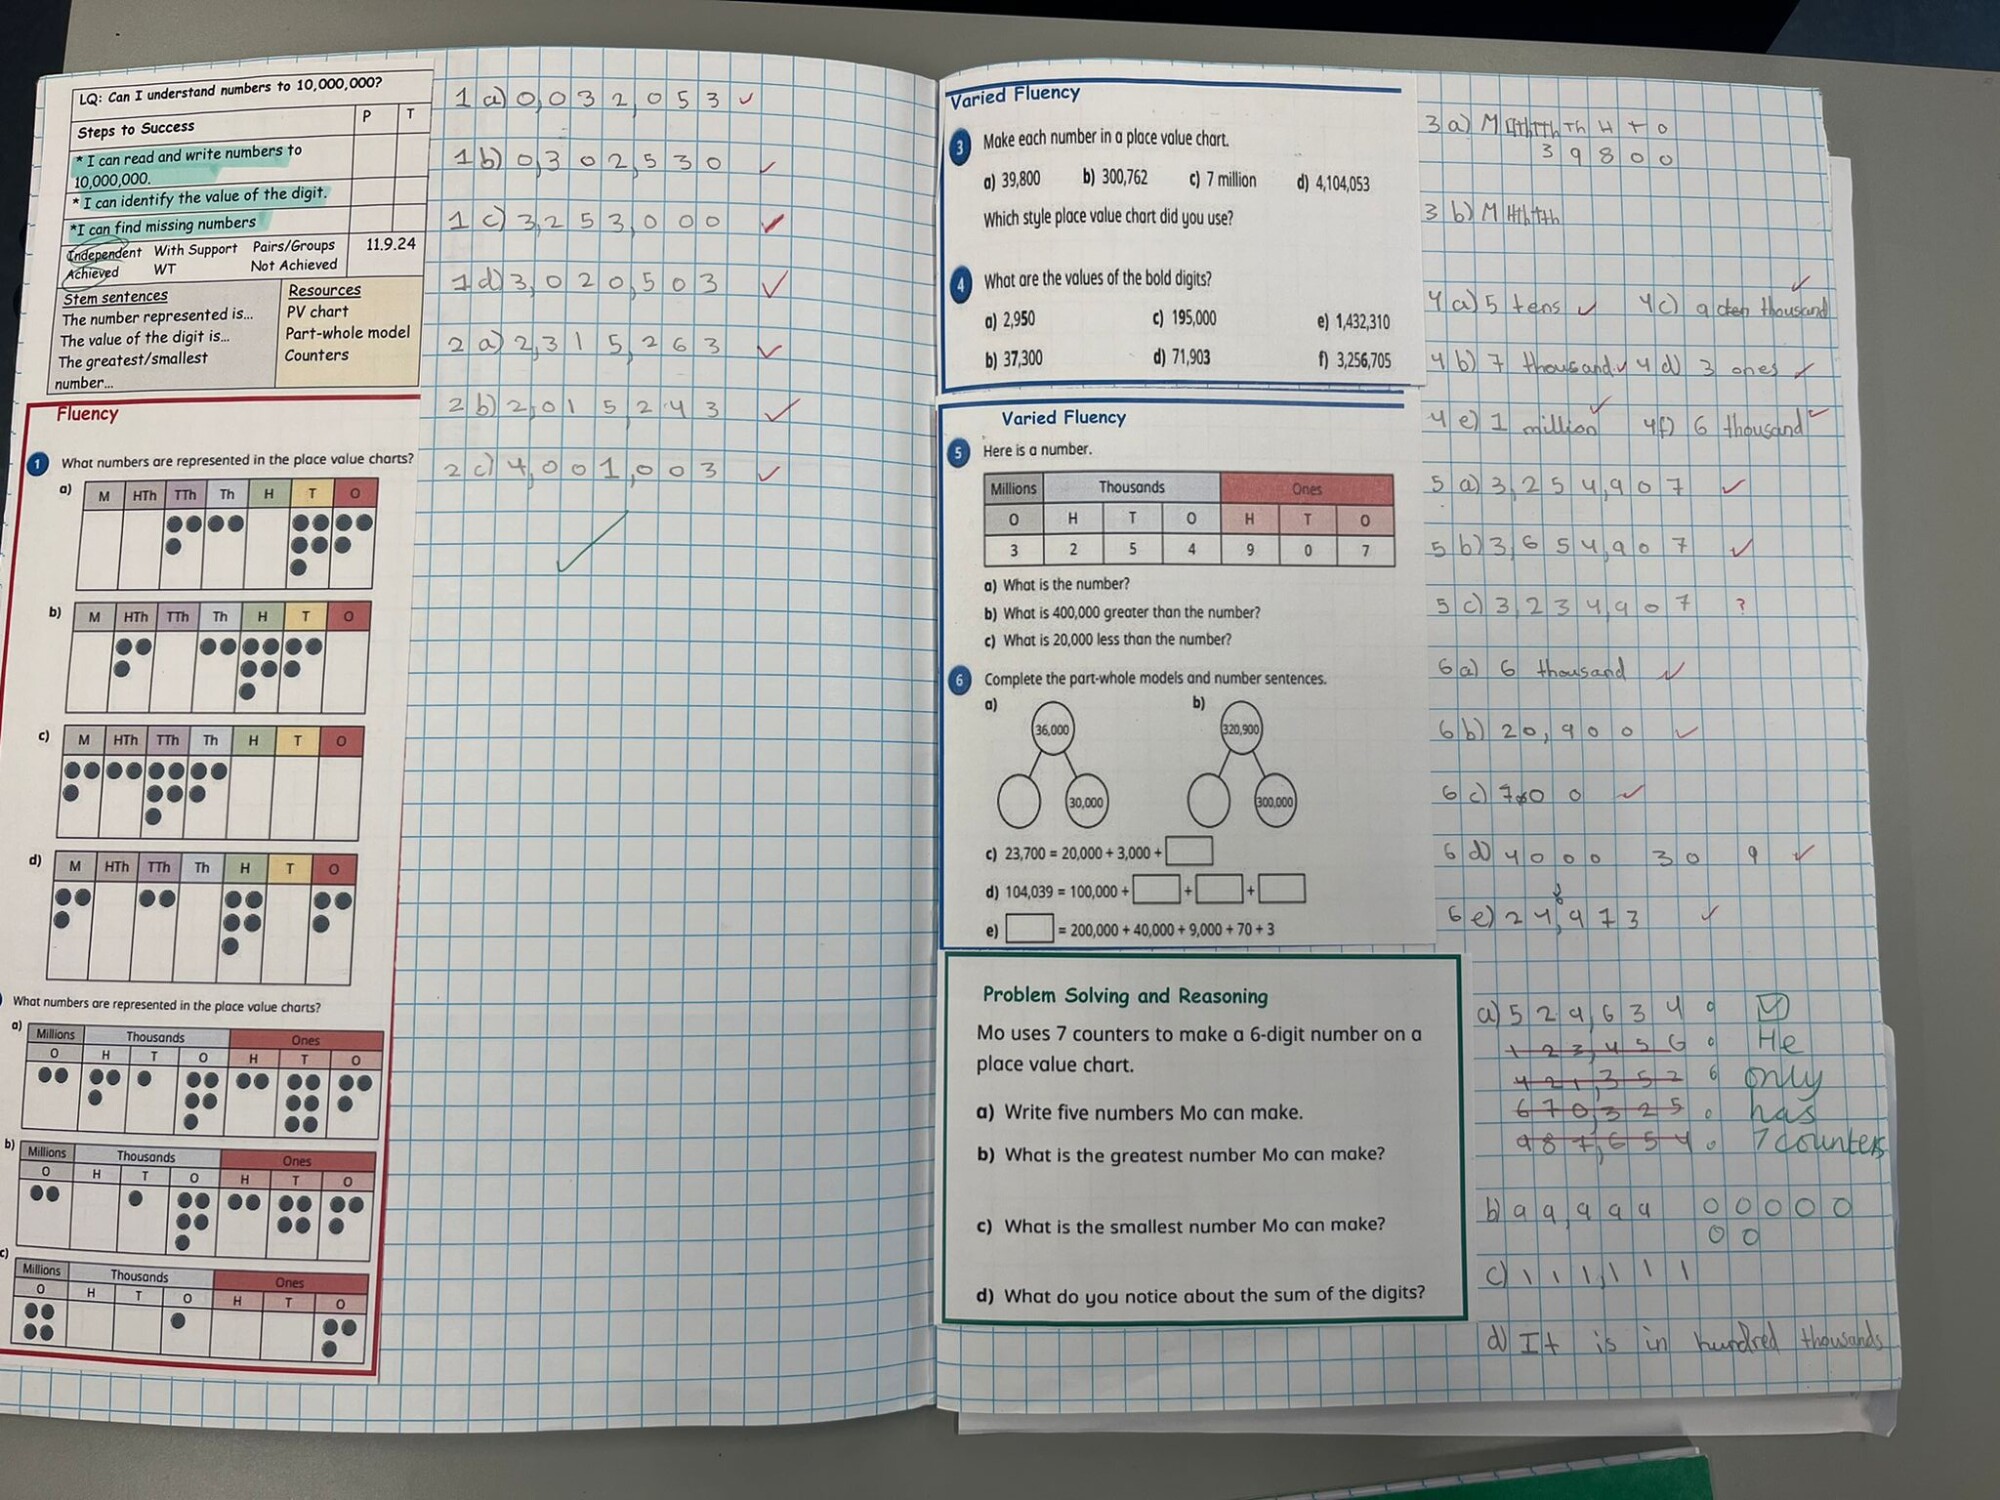 LQ: Can I understand numbers to 10,000,000?
Steps to Success P T
* I can read and write numbers to
10,000,000.
* I can identify the value of the digit.
*I can find missing numbers
Independent With Support Pairs/Groups 11.9.24
Achieved WT Not Achieved
Stem sentences
The number represented is...
The value of the digit is...
The greatest/smallest
number...
Resources
PV chart
Part-whole model
Counters
Fluency
1 What numbers are represented in the place value charts?
a)
M HTh TTh Th H T O
b)
M HTh TTh Th H T O
c)
M HTh TTh Th H T O
d)
M HTh TTh Th H T O
What numbers are represented in the place value charts?
a)
Millions Thousands Ones
O H T O H T O
b)
Millions Thousands Ones
O H T O H T O
c)
Millions Thousands Ones
O H T O H T O
1 a) 0,032,053
1 b) 0,302,530
1 c) 3,253,000
1 d) 3,020,503
2 a) 2,315,263
2 b) 2,015243
2 c) 4,001,003
Varied Fluency
3 Make each number in a place value chart.
a) 39,800 b) 300,762 c) 7 million d) 4,104,053
Which style place value chart did you use?
4 What are the values of the bold digits?
a) 2,950 c) 195,000 e) 1,432,310
b) 37,300 d) 71,903 f) 3,256,705
Varied Fluency
5 Here is a number.
Millions Thousands Ones
O H T O H T O
3 2 5 4 9 0 7
a) What is the number?
b) What is 400,000 greater than the number?
c) What is 20,000 less than the number?
6 Complete the part-whole models and number sentences.
a) b)
36,000 320,900
30,000 300,000
c) 23,700 = 20,000 + 3,000 +
d) 104,039 = 100,000 + + +
e) = 200,000 + 40,000 + 9,000 + 70 + 3
Problem Solving and Reasoning
Mo uses 7 counters to make a 6-digit number on a
place value chart.
a) Write five numbers Mo can make.
b) What is the greatest number Mo can make?
c) What is the smallest number Mo can make?
d) What do you notice about the sum of the digits?
3 a) M Hth TTh Th H T O
3 9 8 0 0
3 b) M Hth Tth
4 a) 5 tens 4 c) 9 ten thousand
4 b) 7 thousand 4 d) 3 ones
4 e) 1 million 4 f) 6 thousand
5 a) 3,254,907
5 b) 3,654,907
5 c) 3,234,907 ?
6 a) 6 thousand
6 b) 20,900
6 c) 700
6 d) 4000 30 9
6 e) 24,973
a) 524,634
123,456 He
421,352 only
670,325 has
987,654 7 counters
b) 99,999 0 0 0 0 0
0 0
c) 111,111
d) It is in hundred thousands